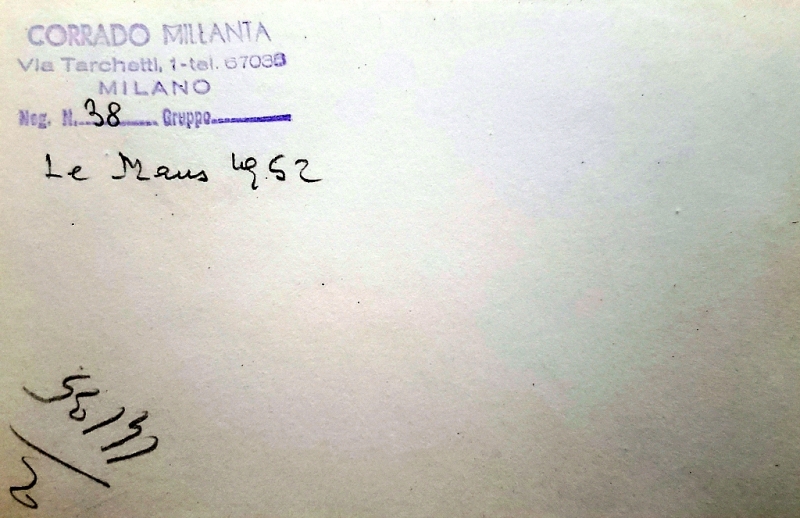 CORRADO MILLANTA
Via Tarchetti, 1-tel. 67038
MILANO
Neg. N. 38 Gruppo
Le Mans 1952